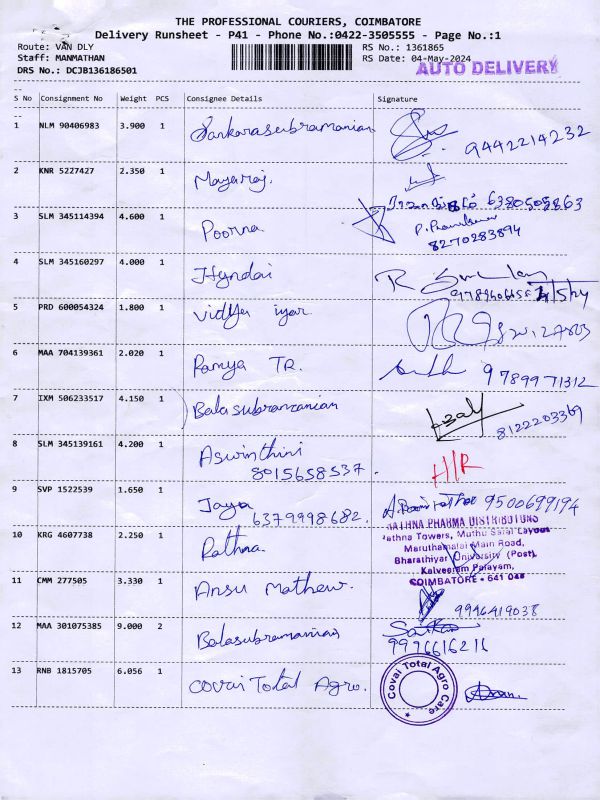 THE PROFESSIONAL COURIERS, COIMBATORE
Delivery Runsheet - P41 - Phone No.:0422-3505555 - Page No.:1
Route: VAN DLY RS No.: 1361865
Staff: MANMATHAN RS Date: 04-May-2024
DRS No.: DCJB136186501 AUTO DELIVERY
S No Consignment No Weight PCS Consignee Details Signature
1 NLM 90406983 3.900 1 Sankarasubramanian 9442214232
2 KNR 5227427 2.350 1 Mayaraj. 6380505863
3 SLM 345114394 4.600 1 Poorna 8270283894
4 SLM 345160297 4.000 1 Hyndai
5 PRD 600054324 1.800 1 Vidhya iyar
6 MAA 704139361 2.020 1 Ramya TR. 9789971312
7 IXM 506233517 4.150 1 Balasubramanian 8122203369
8 SLM 345139161 4.200 1 Aswinthini H/R
8015658537.
9 SVP 1522539 1.650 1 Jaya 9500699194
6379998682.
RATHNA PHARMA DISTRIBUTORS
10 KRG 4607738 2.250 1 Rathna. Rathna Towers, Muthu Salai Layout
Maruthamalai Main Road,
Bharathiyar University (Post),
Kalveeram Palayam,
COIMBATORE - 641 046
11 CMM 277505 3.330 1 Ansu Mathew. 9946419038
12 MAA 301075385 9.000 2 Balasubramanian 9976616216
13 RNB 1815705 6.056 1 Covai Total Agro. Covai Total Agro Care